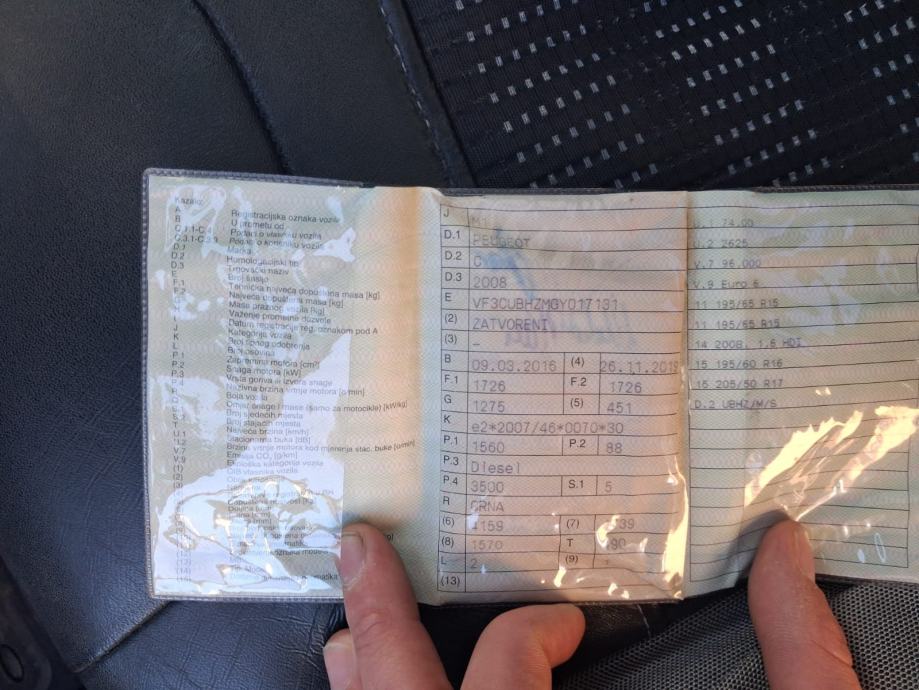 Kazalo:
A Registracijska oznaka vozila
B U prometu od
C.1.1-C.4 Podaci o vlasniku vozila
C.3.1-C.3.3 Podaci o korisniku vozila
D.1 Marka
D.2 Homologacijski tip
D.3 Trgovački naziv
E Broj šasije
F.1 Tehnička najveća dopuštena masa [kg]
F.2 Najveća dopuštena masa [kg]
G Masa praznog vozila [kg]
Važenje prometne dozvole
Datum registracije reg. oznakom pod A
J Kategorija vozila
K Broj tipnog odobrenja
L Broj osovina
P.1 Zapremina motora [cm³]
P.2 Snaga motora [kW]
P.3 Vrsta goriva ili izvora snage
P.4 Nazivna brzina vrtnje motora [o/min]
R Boja vozila
Omjer snage i mase (samo za motocikle) [kW/kg]
S.1 Broj sjedećih mjesta
Broj stajaćih mjesta
T Najveća brzina [km/h]
U.1 Stacionarna buka [dB]
Brzina vrtnje motora kod mjerenja stac. buke [o/min]
V.7 Emisija CO₂ [g/km]
V.9 Ekološka kategorija vozila
(1) OIB vlasnika vozila
(2)
(3)
J M1
D.1 PEUGEOT
D.2 C
D.3 2008
E VF3CUBHZMGY017131
(2) ZATVORENI
(3) –
B 09.03.2016 (4) 26.11.2019
F.1 1726 F.2 1726
G 1275 (5) 451
K e2*2007/46*0070*30
P.1 1560 P.2 88
P.3 Diesel
P.4 3500 S.1 5
R CRNA
(6) 4159 (7)
(8) 1570 T
L 2 (9)
(13)
74.00
U.2 2625
V.7 96.000
V.9 Euro 6
11 195/65 R15
11 195/65 R15
14 2008. 1,6 HDI
15 195/60 R16
15 205/50 R17
D.2 UBHZ/M/S